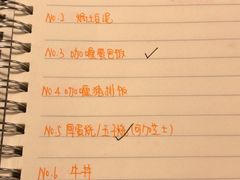 No.2 焗土豆泥
No.3 咖喱蛋包饭
No.4 咖喱猪排饭
No.5 厚蛋烧/玉子烧(可加芝士)
No.6 牛丼